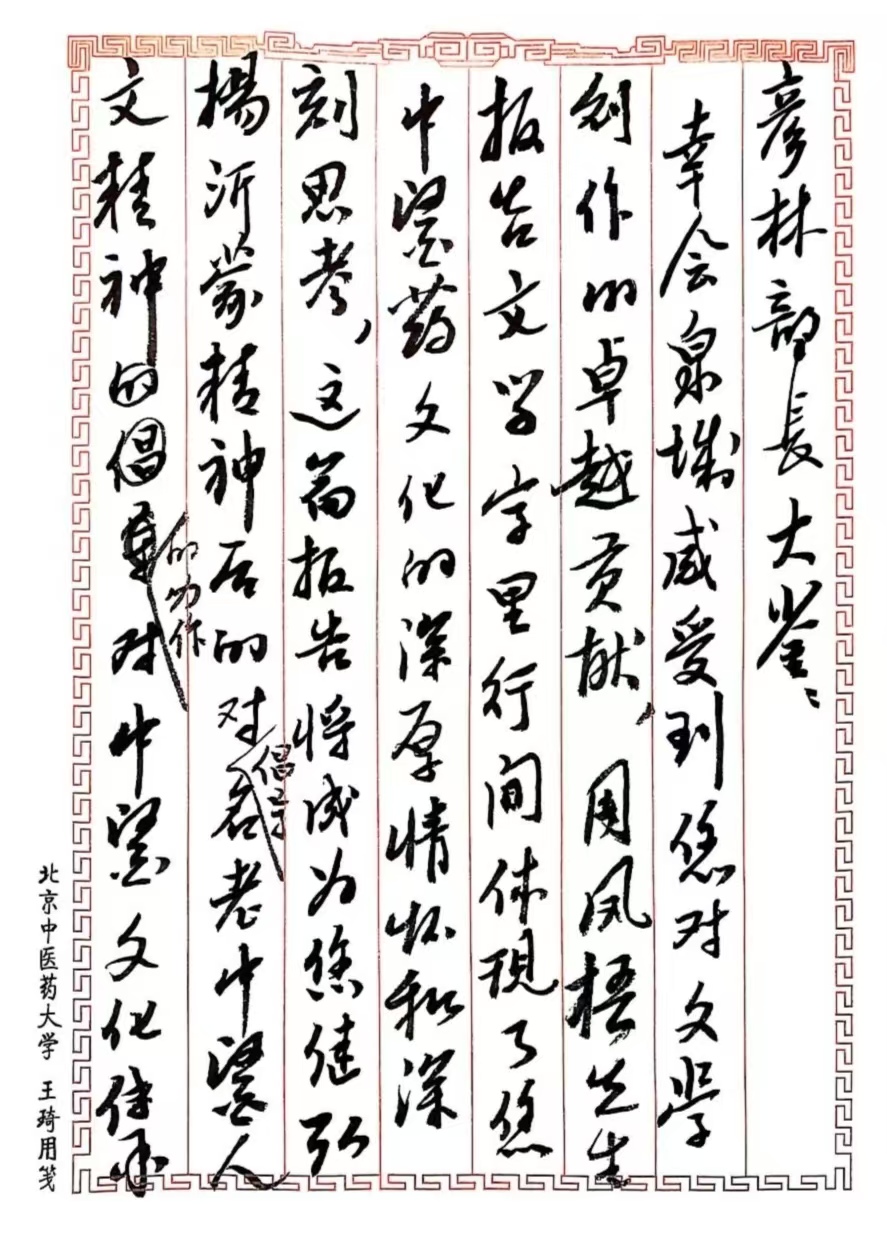 彦林部長大鉴：
幸会泉城感受到您对文学
创作的卓越贡献，周凤梧先生
报告文学字里行间体現了您
中醫药文化的深厚情怀和深
刻思考，这篇报告将成为您继弘
揚沂蒙精神后的对名老中醫人
倡导
文精神的倡导对中醫文化传承
的力作
北京中医药大学 王琦用笺